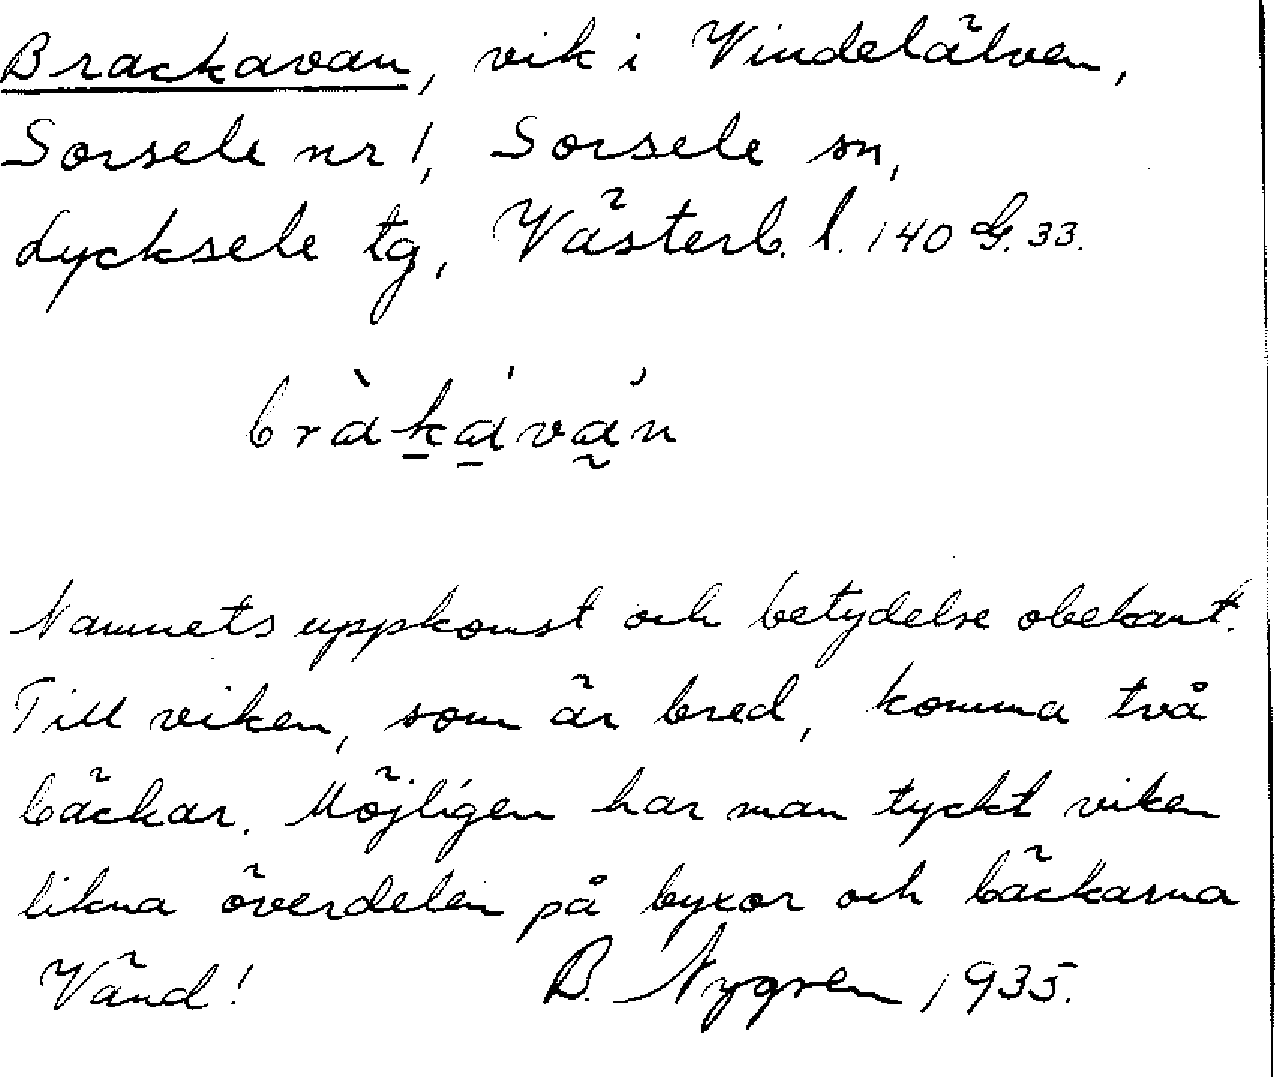 Brackavan, vik i Vindelälven,
Sorsele nr 1, Sorsele sn,
Lycksele tg, Västerb. l. 140 G. 33.
bràka̱ván
Namnets uppkomst och betydelse obekant.
Till viken, som är bred, komma två
bäckar. Möjligen har man tyckt viken
likna överdelen på byxor och bäckarna
Vänd! B. Nygren 1935.